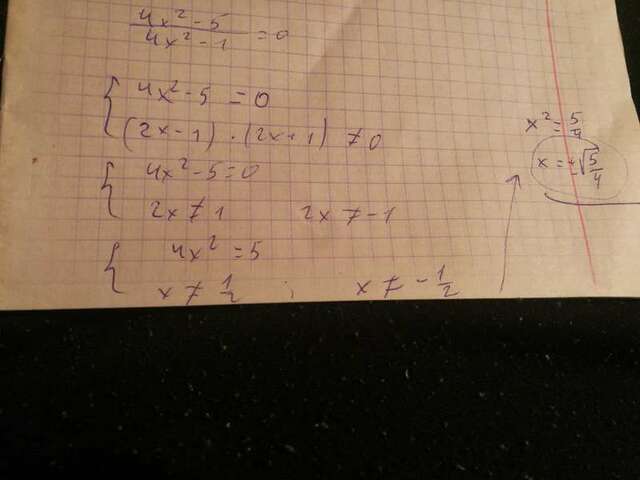 (4x² - 5)/(4x² - 1) = 0
{ 4x² - 5 = 0
(2x - 1) · (2x + 1) ≠ 0
{ 4x² - 5 = 0
2x ≠ 1 2x ≠ -1
{ 4x² = 5
x ≠ 1/2 ; x ≠ -1/2
x² = 5/4
x = ±√(5/4)